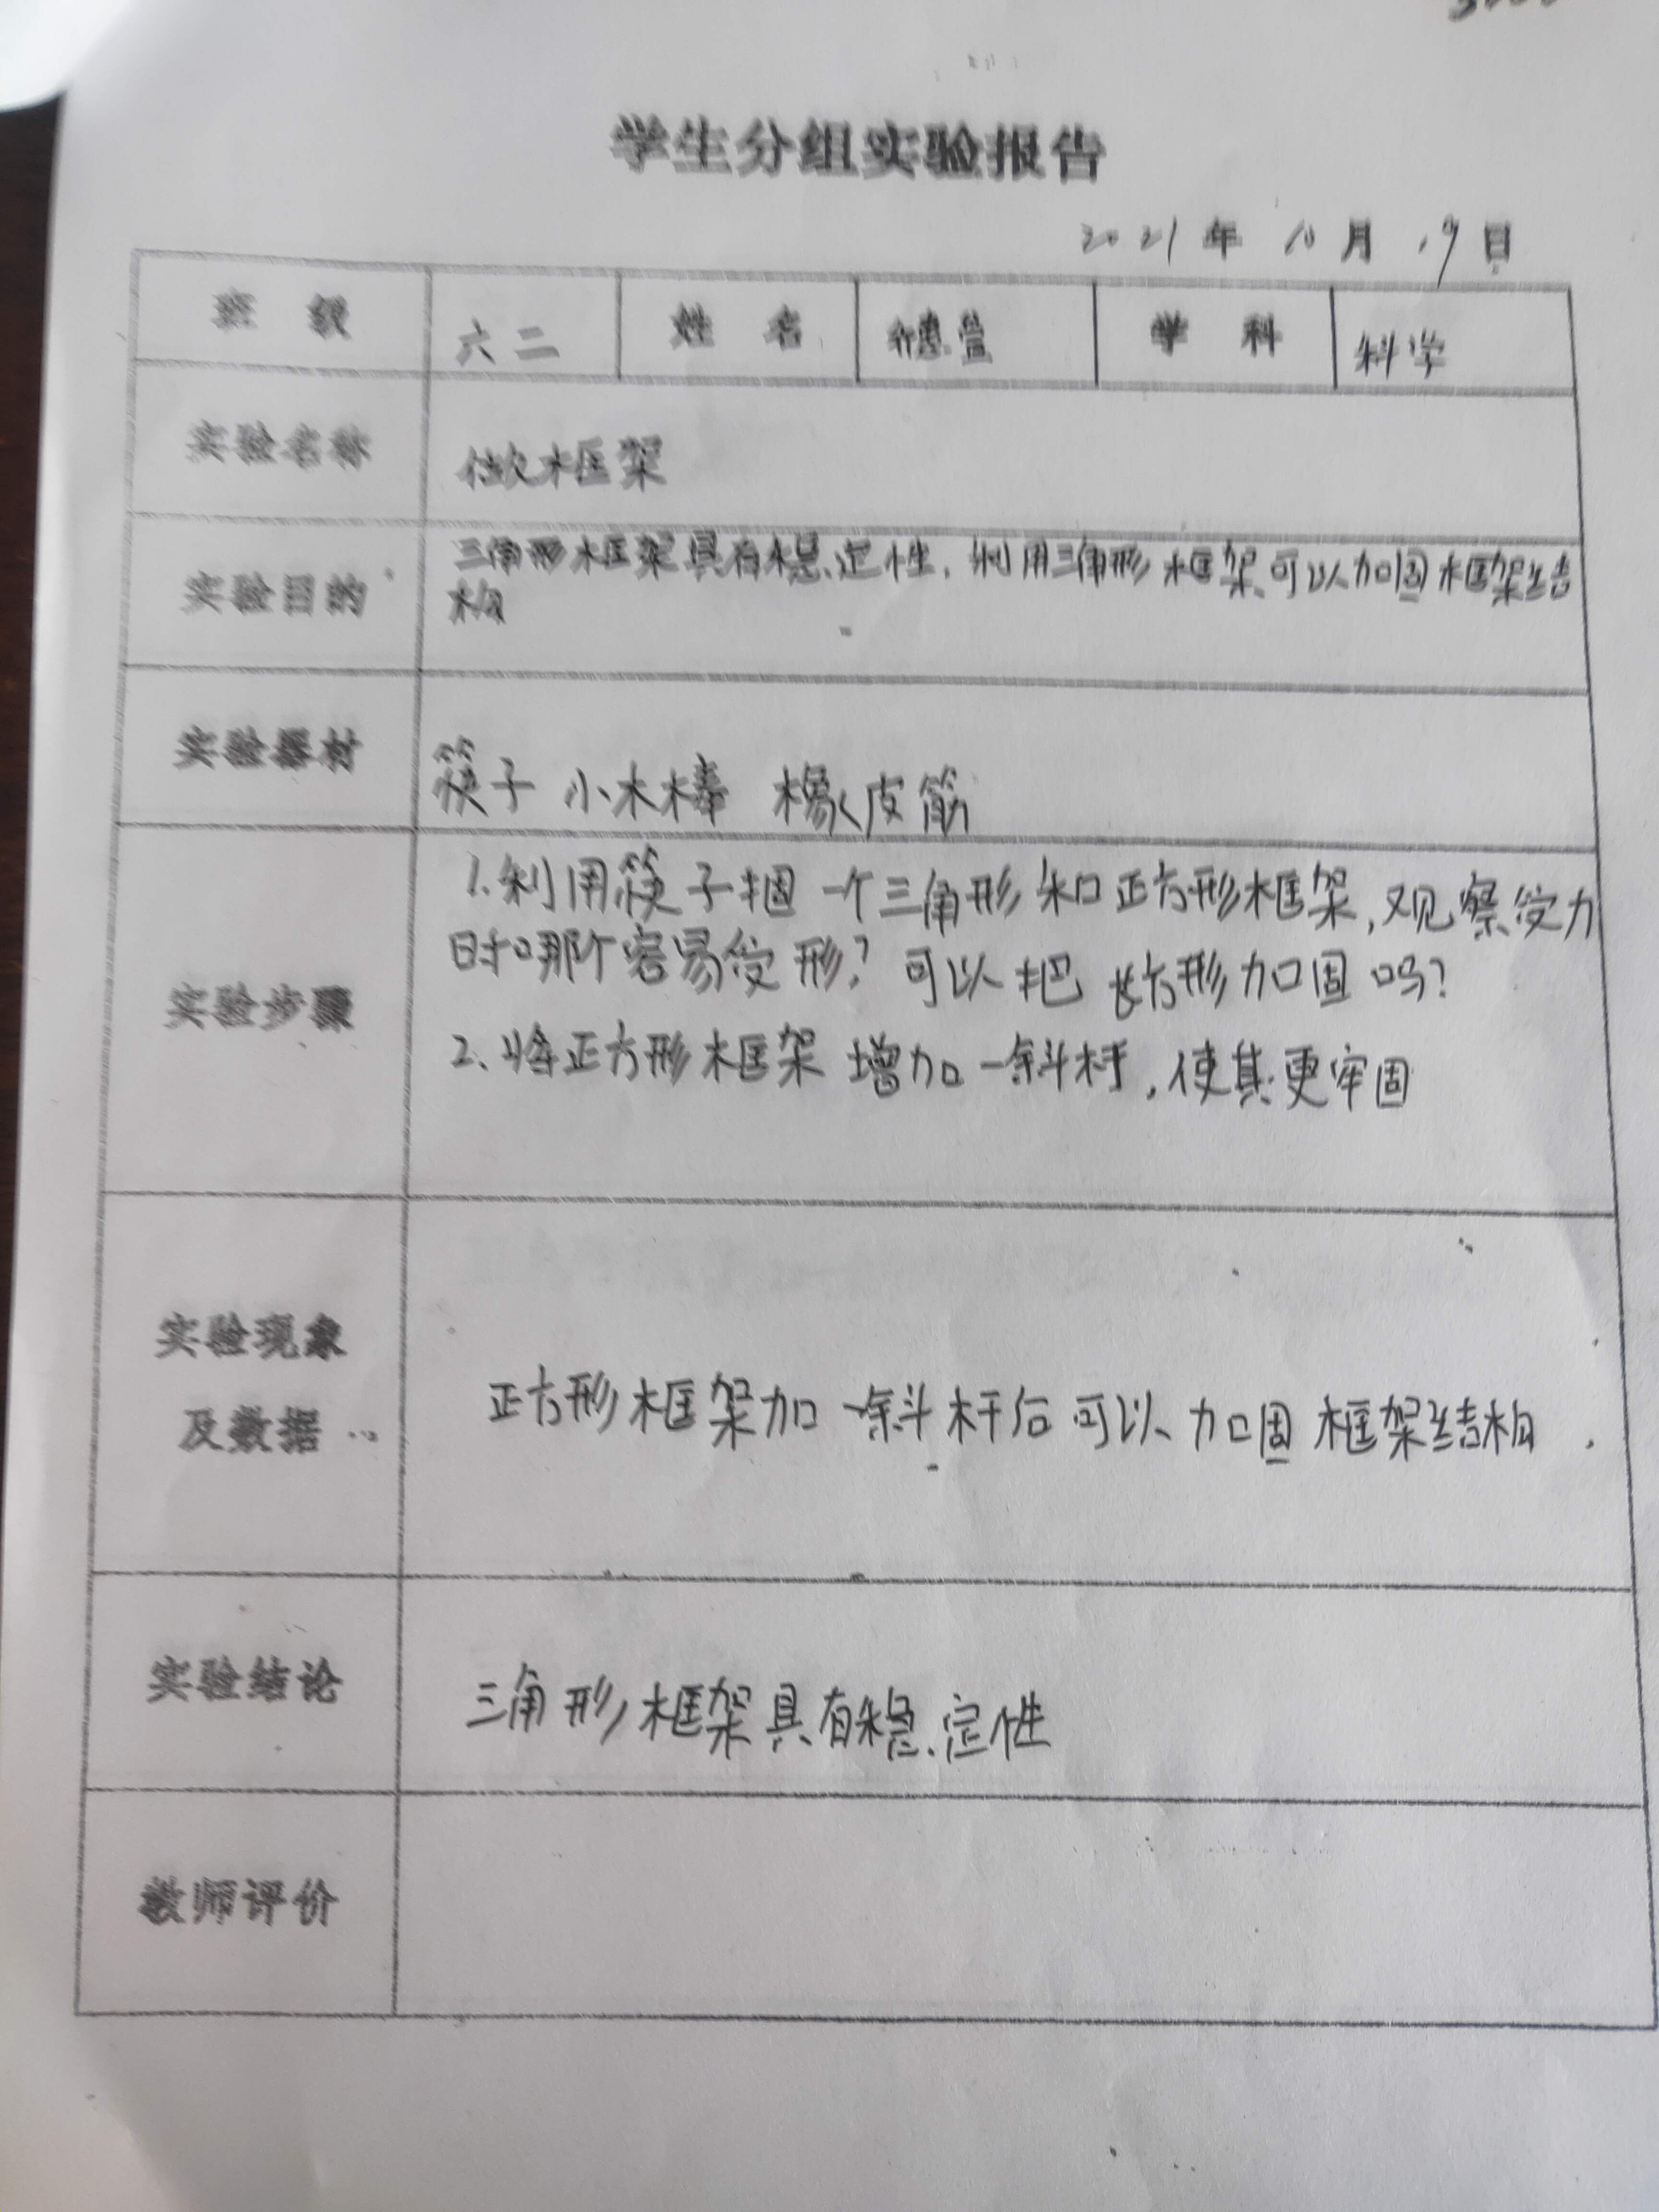 学生分组实验报告
2021年 10月 19日
班 级 六二 姓 名 萱 学 科 科学
实验名称 做框架
实验目的 三角形框架具有稳定性,利用三角形框架可以加固框架结
构
实验器材 筷子 小木棒 橡皮筋
1.利用筷子捆一个三角形和正方形框架,观察受力
时哪个容易变形?可以把长方形加固吗?
实验步骤
2、将正方形框架增加一斜杆,使其更牢固
实验现象
及数据 正方形框架加一斜杆后可以加固框架结构.
实验结论 三角形框架具有稳定性
教师评价